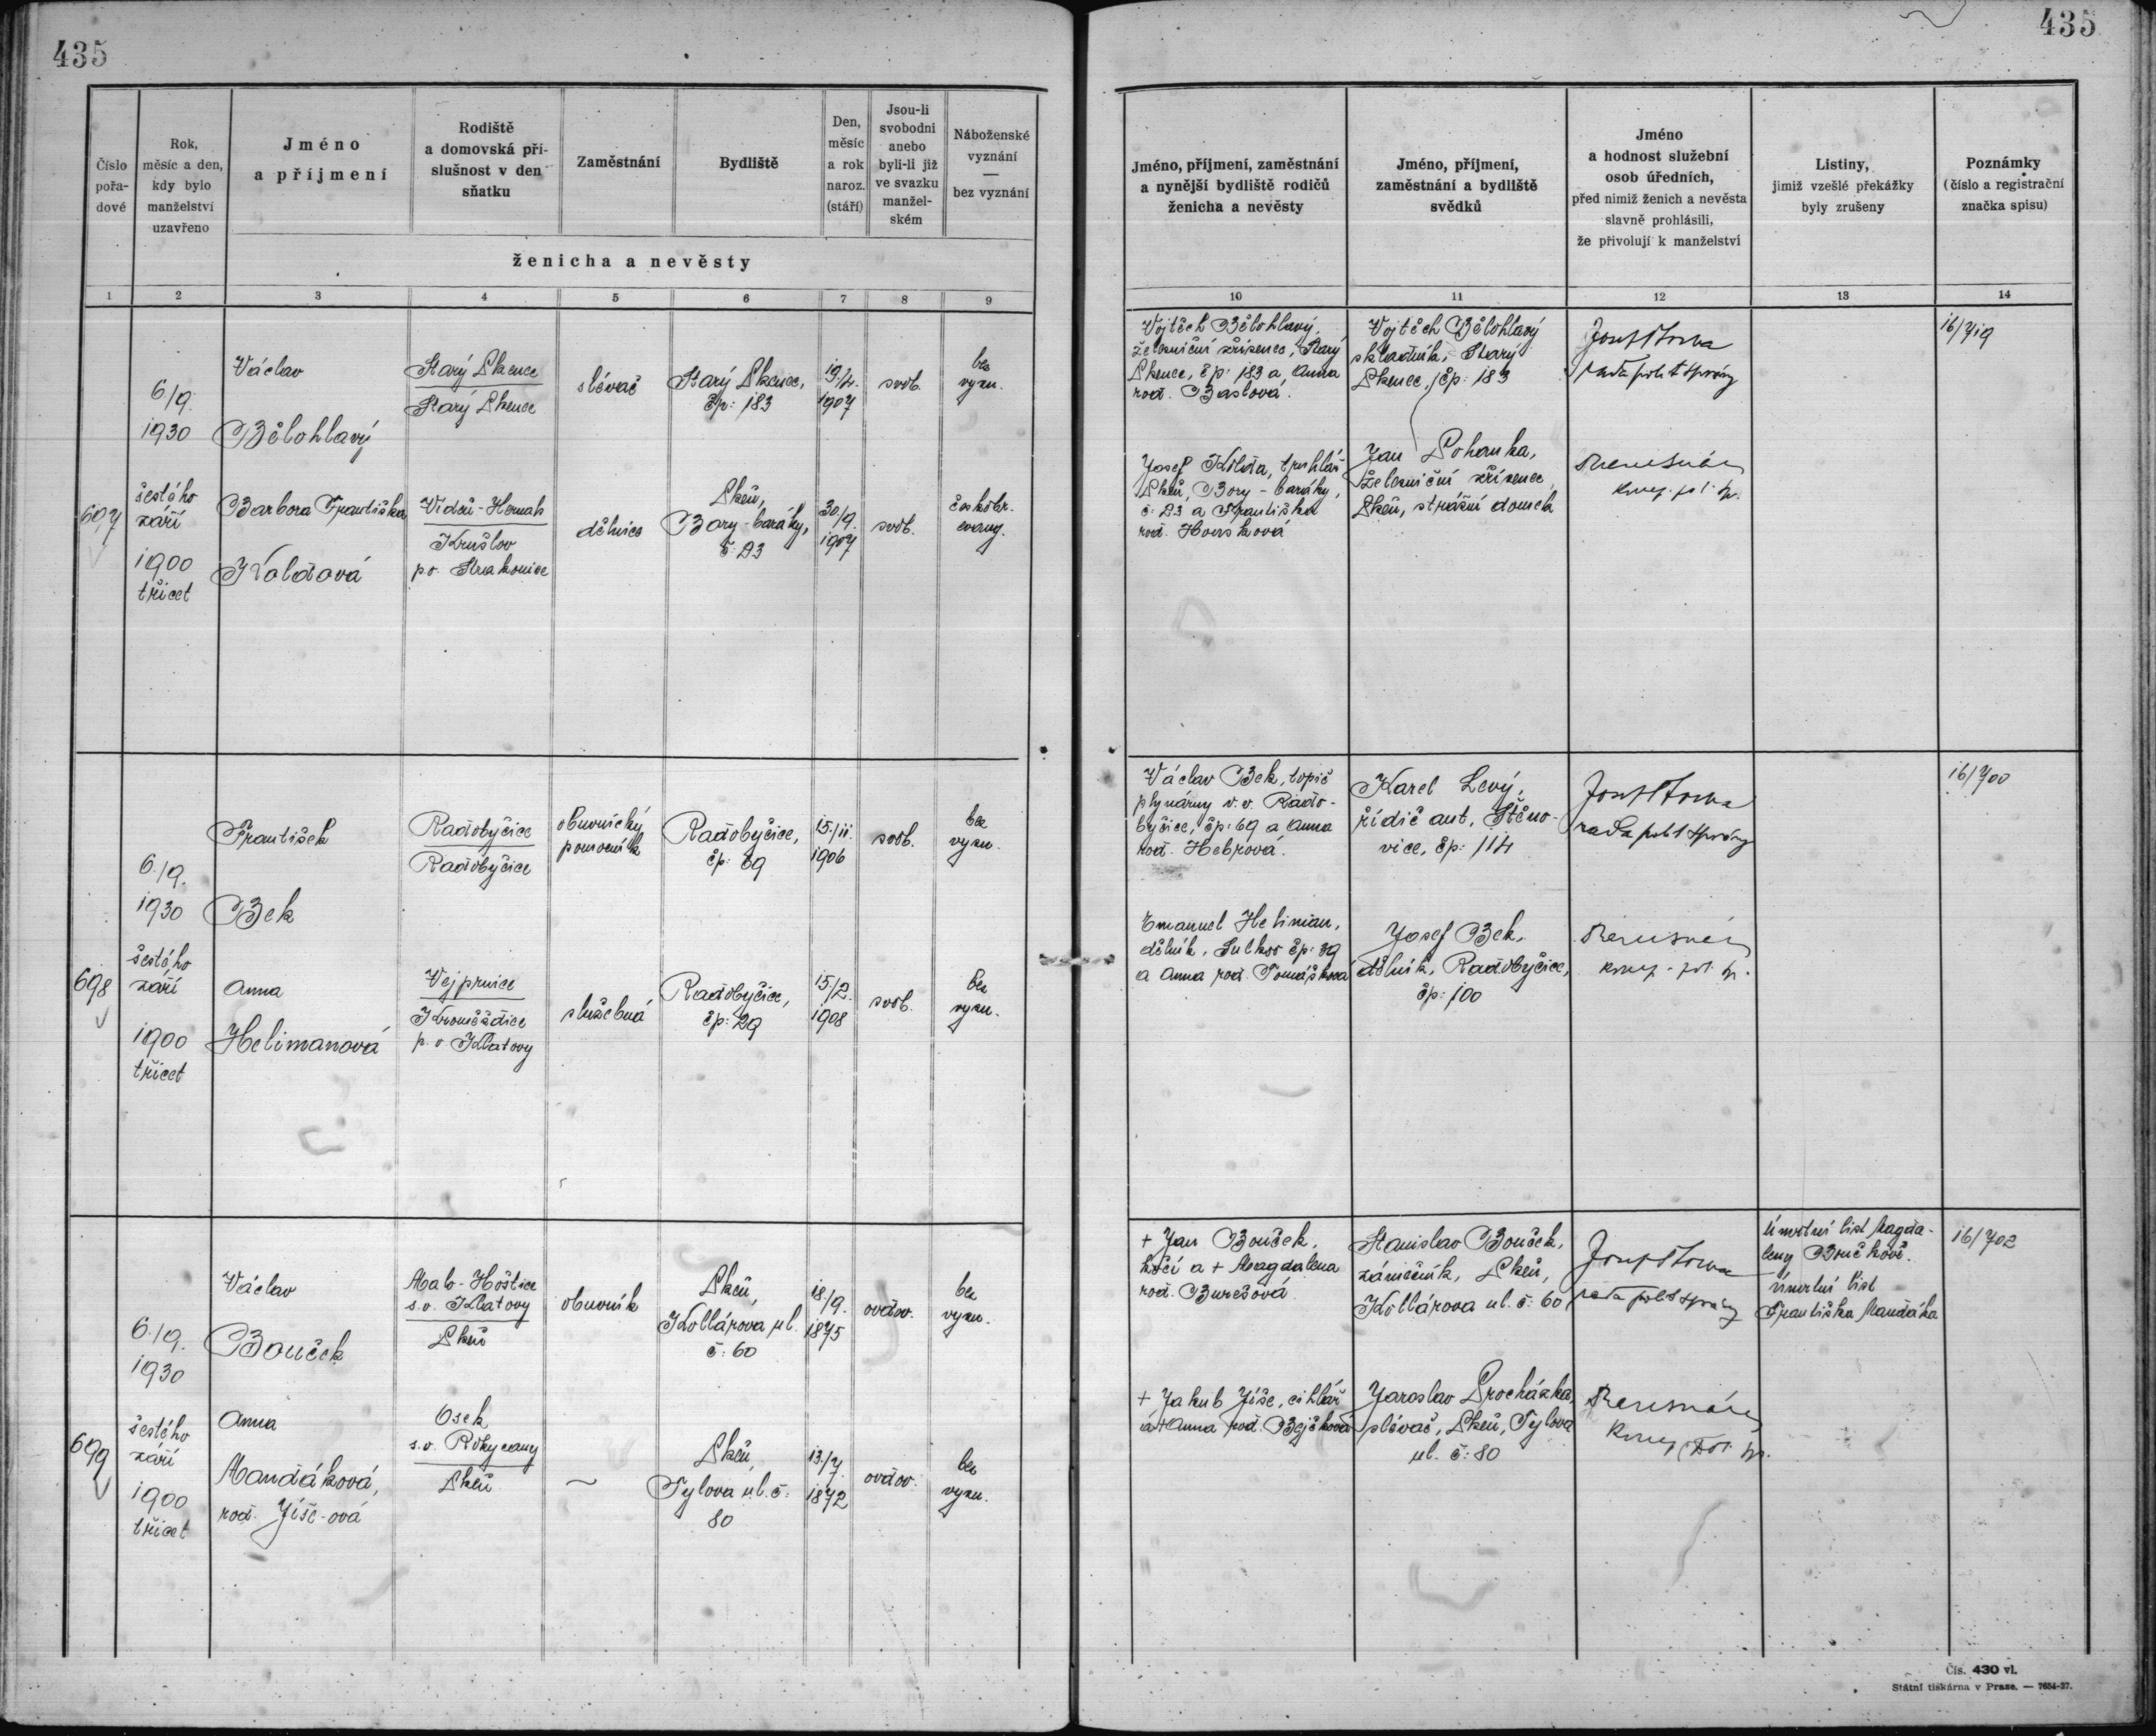 435
435
Číslo pořa- dové
Rok, měsíc a den, kdy bylo manželství uzavřeno
Jméno a příjmení
Rodiště a domovská pří- slušnost v den sňatku
Zaměstnání
Bydliště
Den, měsíc a rok naroz. (stáří)
Jsou-li svobodni anebo byli-li již ve svazku manžel- ském
Náboženské vyznání — bez vyznání
ženicha a nevěsty
1 2 3 4 5 6 7 8 9
Jméno, příjmení, zaměstnání a nynější bydliště rodičů ženicha a nevěsty
Jméno, příjmení, zaměstnání a bydliště svědků
Jméno a hodnost služební osob úředních, před nimiž ženich a nevěsta slavně prohlásili, že přivolují k manželství
Listiny, jimiž vzešlé překážky byly zrušeny
Poznámky (číslo a registrační značka spisu)
10 11 12 13 14
697
6/9.
1930
šestého
září
1900
třicet
Václav
Bělohlavý
Starý Plzenec
Starý Plzenec
slévač
Starý Plzenec,
čp: 183
19./4.
1907
svob.
bez
vyzn.
Barbora Františka
Koldová
Vídeň-Hernals
Krušlov
p.o. Strakonice
dělnice
Plzeň,
Bory-baráky,
č: 23
30/9.
1907
svob.
českobr.
evang.
Vojtěch Bělohlavý,
železniční zřízenec, Starý
Plzenec, čp: 183 a Anna
rod. Baslová.
Josef Kolda, truhlář
Plzeň, Bory-baráky,
č: 23 a Františka
rod. Houšková
Vojtěch Bělohlavý
skladník, Starý
Plzenec, čp: 183
Jan Pohanka,
železniční zřízenec,
Plzeň, strážní domek
rada polit správy
16/719
698
6./9.
1930
šestého
září
1900
třicet
František
Bek
Radobyčice
Radobyčice
obuvnický
pomocník
Radobyčice,
čp: 69
15./11.
1906
svob.
bez
vyzn.
Anna
Helimanová
Vejprnice
Kroměždice
p.o. Klatovy
služebná
Radobyčice,
čp: 29
15./2.
1908
svob.
bez
vyzn.
Václav Bek, topič
plynárny v.v. Rado-
byčice, čp: 69 a Anna
rod. Hebrová.
Emanuel Heliman,
dělník, Sulkov čp: 39
a Anna rod. Tomášková
Karel Levý,
řidič aut, Štěno-
vice, čp: 114
Josef Bek,
dělník, Radobyčice,
čp: 100
rada polit správy
16/700
699
6./9.
1930
šestého
září
1900
třicet
Václav
Bouček
Malo-Hoštice
s.o. Klatovy
Plzeň
obuvník
Plzeň,
Kollárova ul.
č: 60
18./9.
1875
ovdov.
bez
vyzn.
Anna
Mandáková,
rod. Jíše-ová
Osek
s.o. Rokycany
Plzeň
~
Plzeň,
Tylova ul. č:
80
13./7.
1872
ovdov.
bez
vyzn.
+ Jan Bouček,
kočí a + Magdalena
rod. Burešová
+ Jakub Jíše, cihlář
a + Anna rod. Bejčková
Stanislav Bouček,
zámečník, Plzeň,
Kollárova ul. č: 60
Jaroslav Procházka,
slévač, Plzeň, Tylova
ul. č: 80
rada polit správy
Úmrtní list Magda-
leny Boučkové.
Úmrtní list
Františka Mandáka
16/702
Čís. 430 vl.
Státní tiskárna v Praze. — 7654-27.